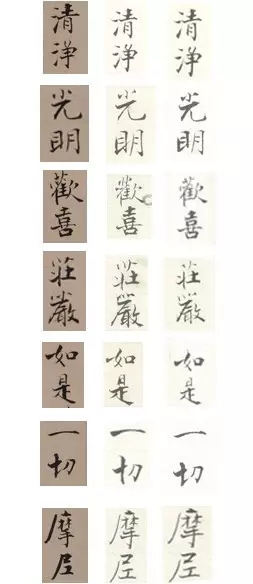 清淨 清淨 清淨
光明 光明 光明
歡喜 歡喜 歡喜
莊嚴 莊嚴 莊嚴
如是 如是 如是
一切 一切 一切
摩尼 摩尼 摩尼